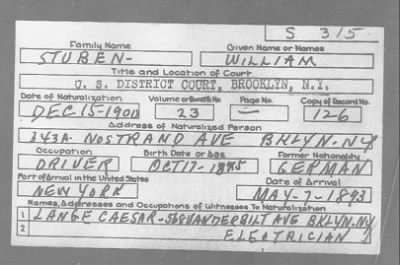 S 315
Family Name Given Name or Names
STUBEN- WILLIAM
Title and Location of Court
U. S. DISTRICT COURT, BROOKLYN, N.Y.
Date of Naturalization Volume or Bundle No. Page No. Copy of Record No.
DEC 15-1900 23 — 126
Address of Naturalized Person
343A NOSTRAND AVE BKLYN-NY
Occupation Birth Date or Age Former Nationality
DRIVER OCT 17-1875 GERMAN
Port of Arrival in the United States Date of Arrival
NEW YORK MAY-7-1893
Names, Addresses and Occupations of Witnesses To Naturalization
1 LANGE CAESAR-569 VANDERBILT AVE BKLYN.NY
2 ELECTRICIAN